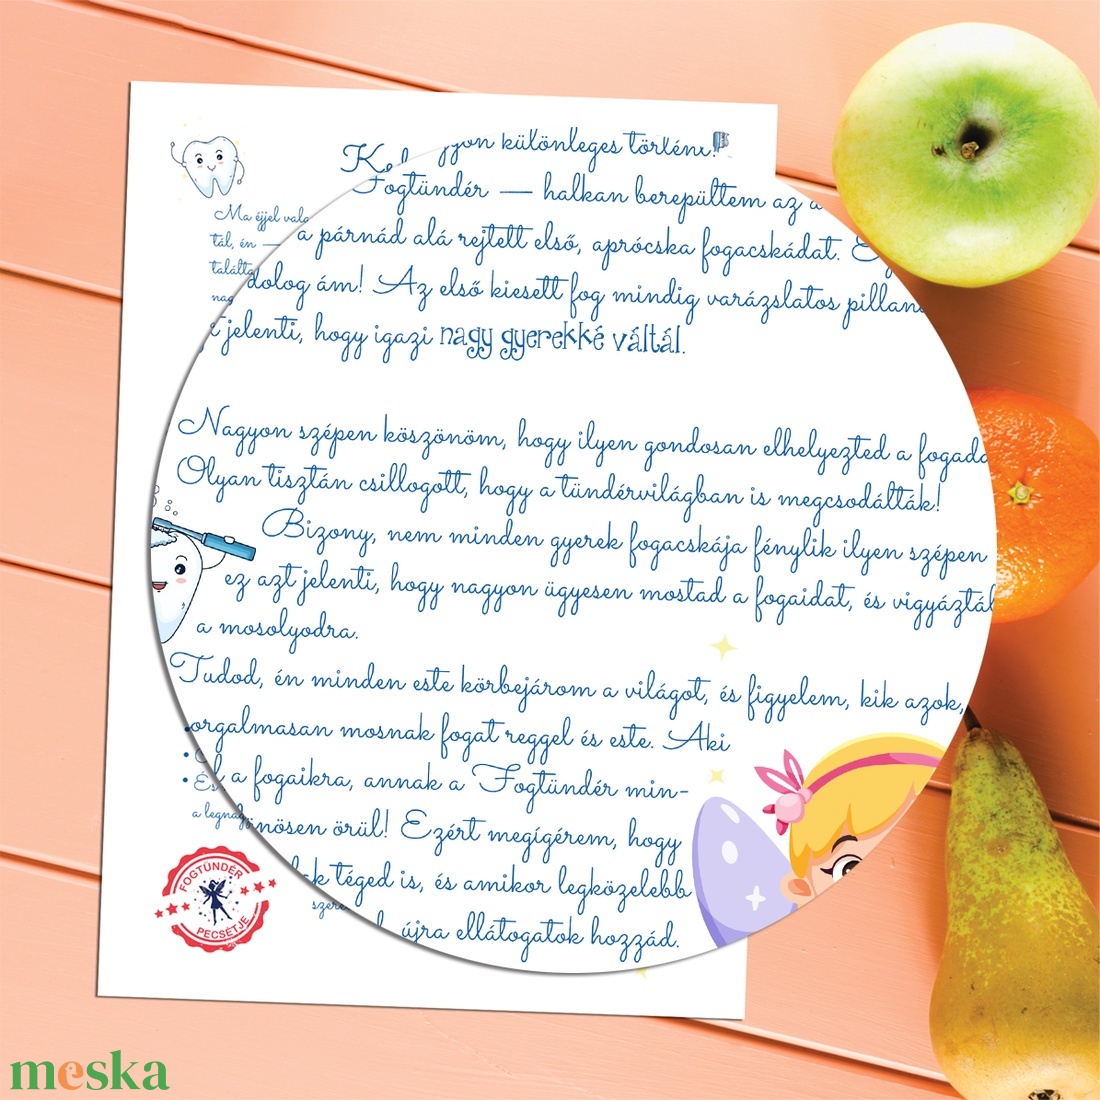 Ma éjjel
tál, én —
találta
nag
különleges
Fogtündér — halkan berepültem az a
a párnád alá rejtett első, aprócska fogacskádat.
dolog ám! Az első kiesett fog mindig varázslatos pillan
jelenti, hogy igazi nagy gyerekké váltál.
Nagyon szépen köszönöm, hogy ilyen gondosan elhelyezted a fogada
Olyan tisztán csillogott, hogy a tündérvilágban is megcsodálták!
Bizony, nem minden gyerek fogacskája fénylik ilyen szépen
ez azt jelenti, hogy nagyon ügyesen mostad a fogaidat, és vigyáztál
a mosolyodra.
Tudod, én minden este körbejárom a világot, és figyelem, kik azok,
orgalmasan mosnak fogat reggel és este. Aki
a fogaikra, annak a Fogtündér min-
nösen örül! Ezért megígérem, hogy
téged is, és amikor legközelebb
újra ellátogatok hozzád.
• 
• És
a legnag
szere
FOGTÜNDÉR
PECSÉTJE
meska